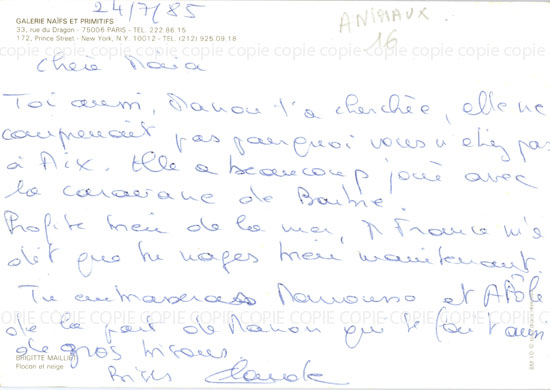 24/7/85
ANIMAUX
16
GALERIE NAÏFS ET PRIMITIFS
33, rue du Dragon - 75006 PARIS - TEL. 222.86.15
172, Prince Street - New York, N.Y. 10012 - TEL. (212) 925.09.18
COPIE COPIE COPIE COPIE COPIE COPIE COPIE COPIE COPIE
Chère Maïa
Toi aussi, Manon t'a cherchée, elle ne
comprenait pas pourquoi vous n'étiez pas
à Aix. Elle a beaucoup joué avec
la caravane de Barbie.
Profite bien de la mer, France m'a
dit que tu nages bien maintenant.
Tu embrasseras Mamousso et
de la part de Manon qui te font aussi
de gros bisous.
BRIGITTE MAILLI
Flocon et neige
Bises Claude